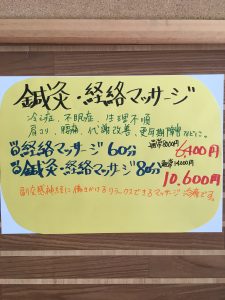 鍼灸・経絡マッサージ
冷え症、不眠症、生理不順
肩コリ、腰痛、代謝改善、更年期障害などに。
経絡マッサージ 60分 通常8000円 6,400円
鍼灸・経絡マッサージ 80分 通常14000円
10,600円
副交感神経に働きかけるリラックスできるマッサージ治療です。